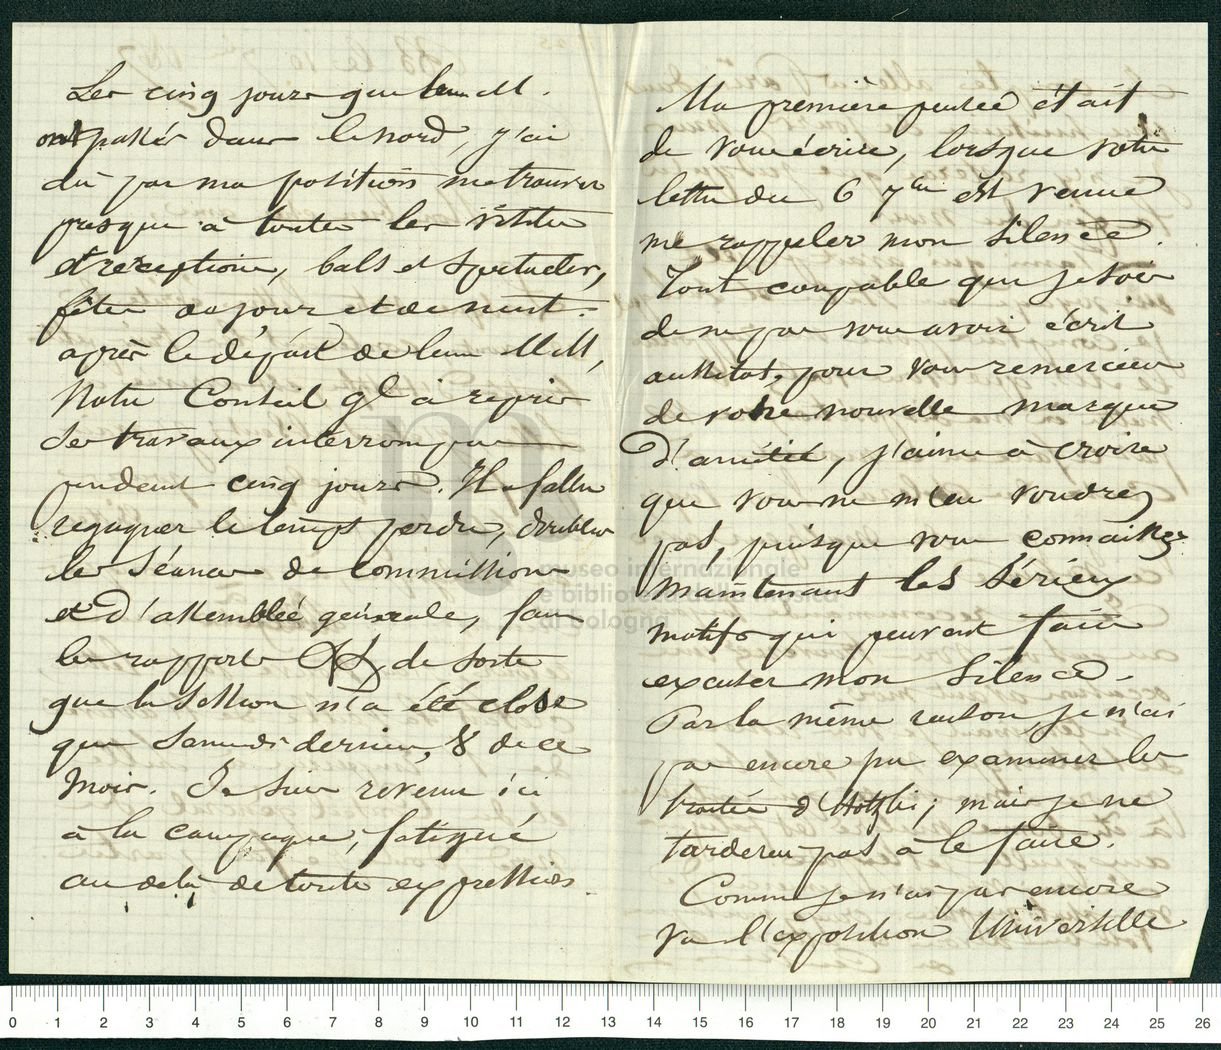 Les cinq jours que leurs M.
ont passés dans le nord, j'ai
dû par ma position me trouver
presque à toutes les visites
et réceptions, bals et spectacles,
fêtes de jour et de nuit.
après le départ de leurs M M,
Notre Conseil gl a repris
ses travaux interrompus
pendant cinq jours. Il a fallu
regagner le temps perdu, doubler
les séances de commissions
et d'assemblée générale, faire
les rapports &&, de sorte
que la session n'a été close
que Samedi dernier, 8 de ce
mois. Je suis revenu ici
à la campagne, fatigué
au delà de toute expression.
Ma première pensée était
de vous écrire, lorsque votre
lettre du 6 7bre est venue
me rappeler mon silence.
Tout coupable que je sois
de ne pas vous avoir écrit
aussitot, pour vous remercier
de votre nouvelle marque
d'amitié, j'aime à croire
que vous ne m'en voudrez
pas, puisque vous connaissez
maintenant les sérieux
motifs qui peuvent faire
excuser mon silence.
Par la même raison, je n'ai
pas encore pu examiner les
traités d'; mais je ne
tarderai pas à le faire.
Comme je n'ai pas encore
vu l'exposition Universelle
museo internazionale
e biblioteca della musica
di bologna
0 1 2 3 4 5 6 7 8 9 10 11 12 13 14 15 16 17 18 19 20 21 22 23 24 25 26